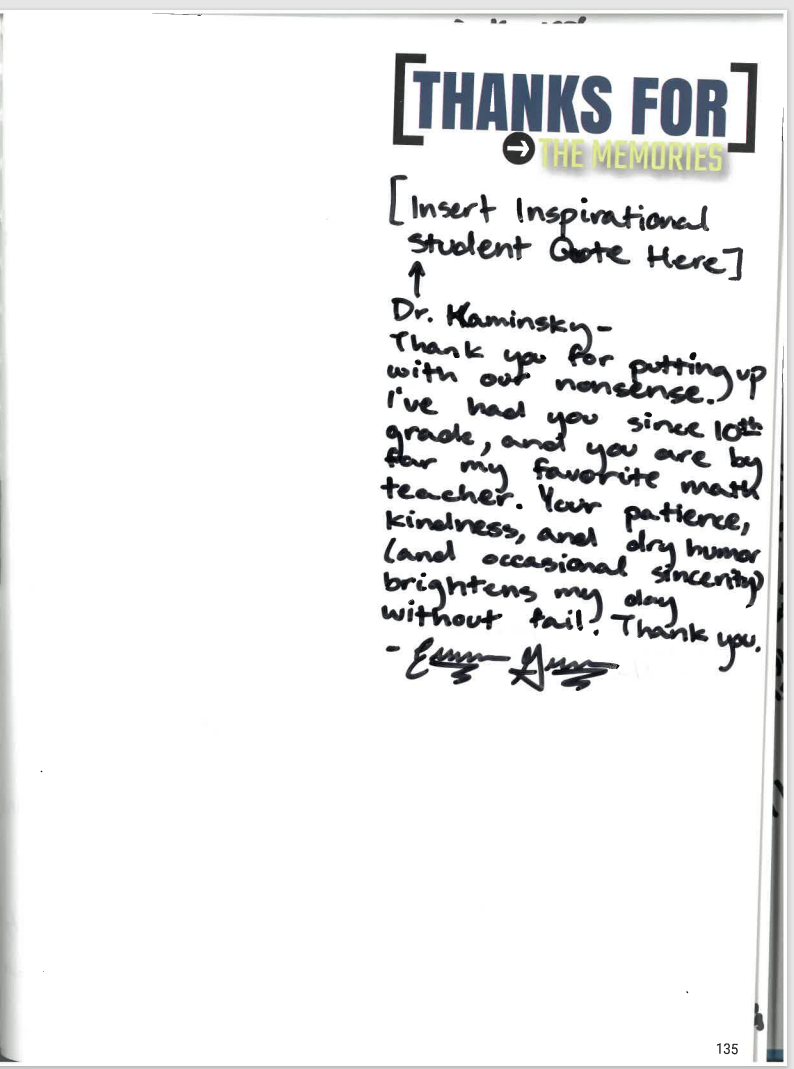 THANKS FOR
THE MEMORIES
[Insert Inspirational
student Quote Here]
Dr. Kaminsky-
Thank you for putting up
with our nonsense.
I've had you since 10th
grade, and you are by
far my favorite math
teacher. Your patience,
kindness, and dry humor
(and occasional sincerity)
brightens my day
without fail. Thank you.
135